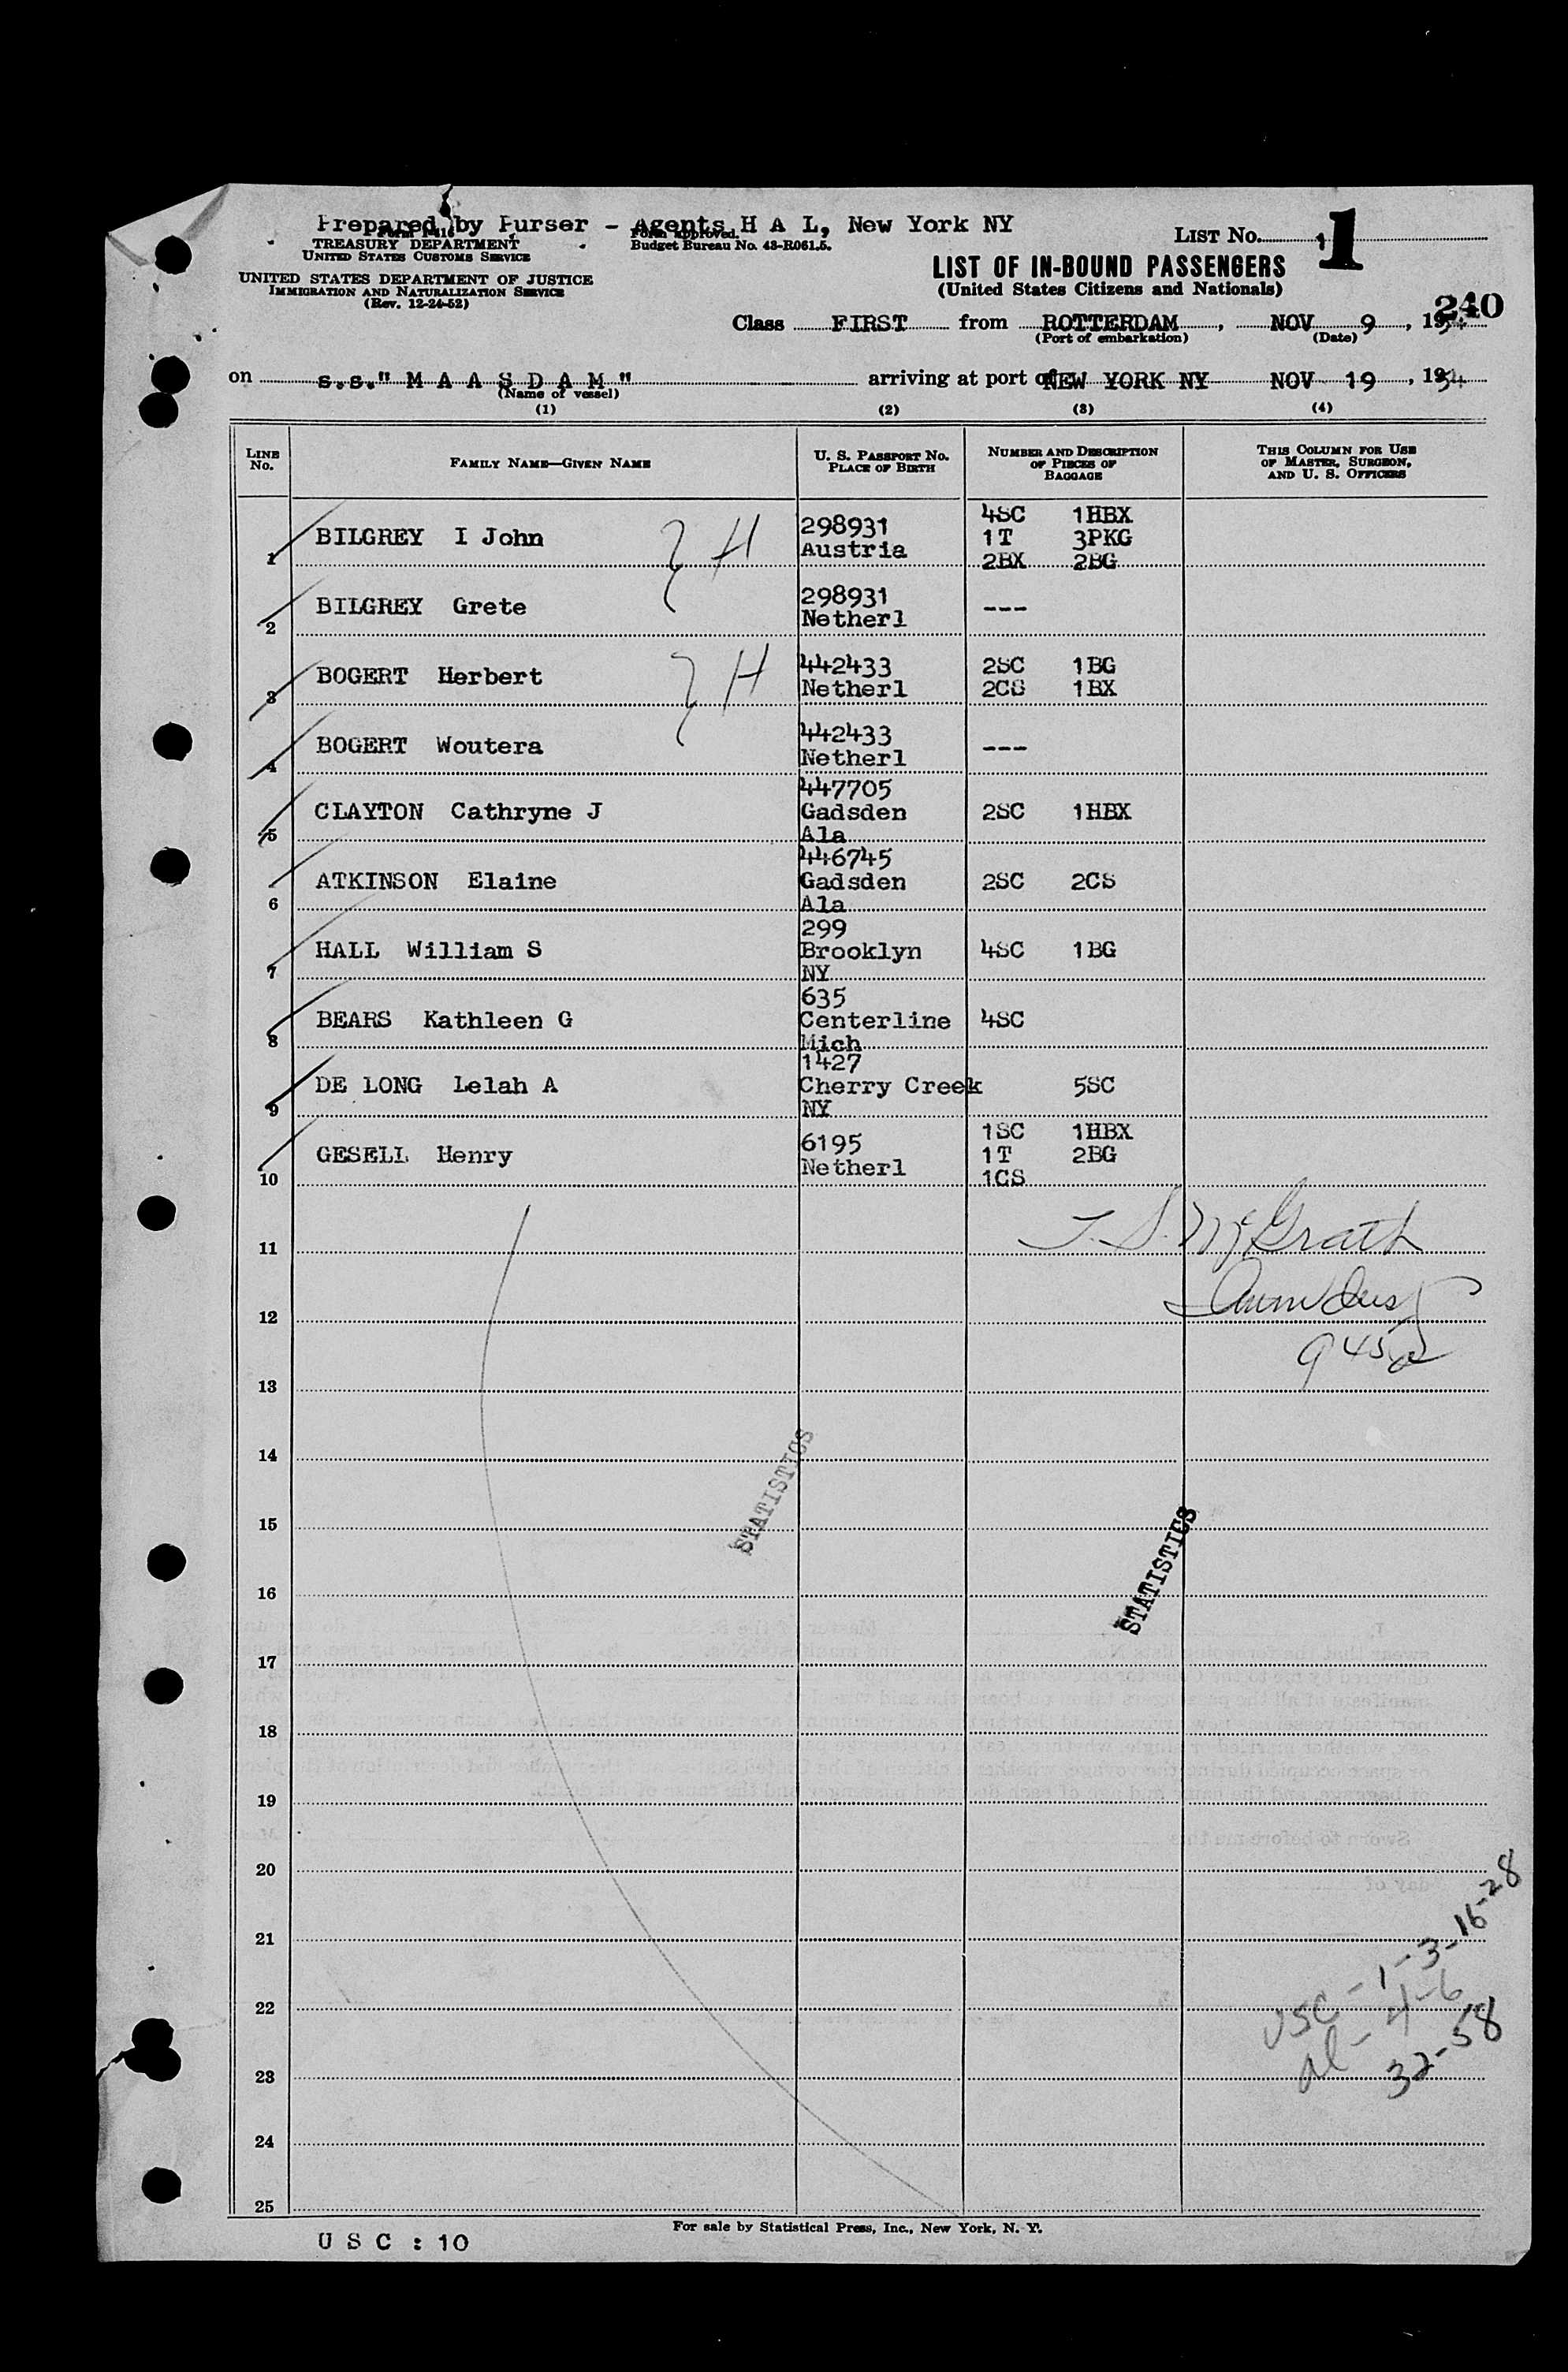 Prepared by Purser - Agents H A L, New York NY
Form approved.
Budget Bureau No. 43-R061.5.
TREASURY DEPARTMENT
UNITED STATES CUSTOMS SERVICE
UNITED STATES DEPARTMENT OF JUSTICE
IMMIGRATION AND NATURALIZATION SERVICE
(Rev. 12-24-52)
LIST NO. 1
1
LIST OF IN-BOUND PASSENGERS
(United States Citizens and Nationals)
240
Class FIRST from ROTTERDAM, NOV 9, 1954
(Port of embarkation) (Date)
on s.s." M A A S D A M " arriving at port of NEW YORK NY NOV 19, 1954
(Name of vessel)
(1) (2) (3) (4)
LINE No. FAMILY NAME—GIVEN NAME U. S. PASSPORT NO. PLACE OF BIRTH NUMBER AND DESCRIPTION OF PIECES OF BAGGAGE THIS COLUMN FOR USE OF MASTER, SURGEON, AND U. S. OFFICERS
1 BILGREY I John H 298931 Austria 4SC 1HBX 1T 3PKG 2BX 2BG
2 BILGREY Grete 298931 Netherl ---
3 BOGERT Herbert H 442433 Netherl 2SC 1BG 2CS 1BX
4 BOGERT Woutera 442433 Netherl ---
5 CLAYTON Cathryne J 447705 Gadsden Ala 2SC 1HBX
6 ATKINSON Elaine 446745 Gadsden Ala 2SC 2CS
7 HALL William S 299 Brooklyn NY 4SC 1BG
8 BEARS Kathleen G 635 Centerline Mich 4SC
9 DE LONG Lelah A 1427 Cherry Creek NY 5SC
10 GESELL Henry 6195 Netherl 1SC 1HBX 1T 2BG 1CS
11 T. S. McGrath
12
945
13
14
STATISTICS
15
STATISTICS
16
17
18
19
20
21
USC-1-3-16-28
22
al-4-6
32-58
23
24
25
For sale by Statistical Press, Inc., New York, N. Y.
U S C : 10